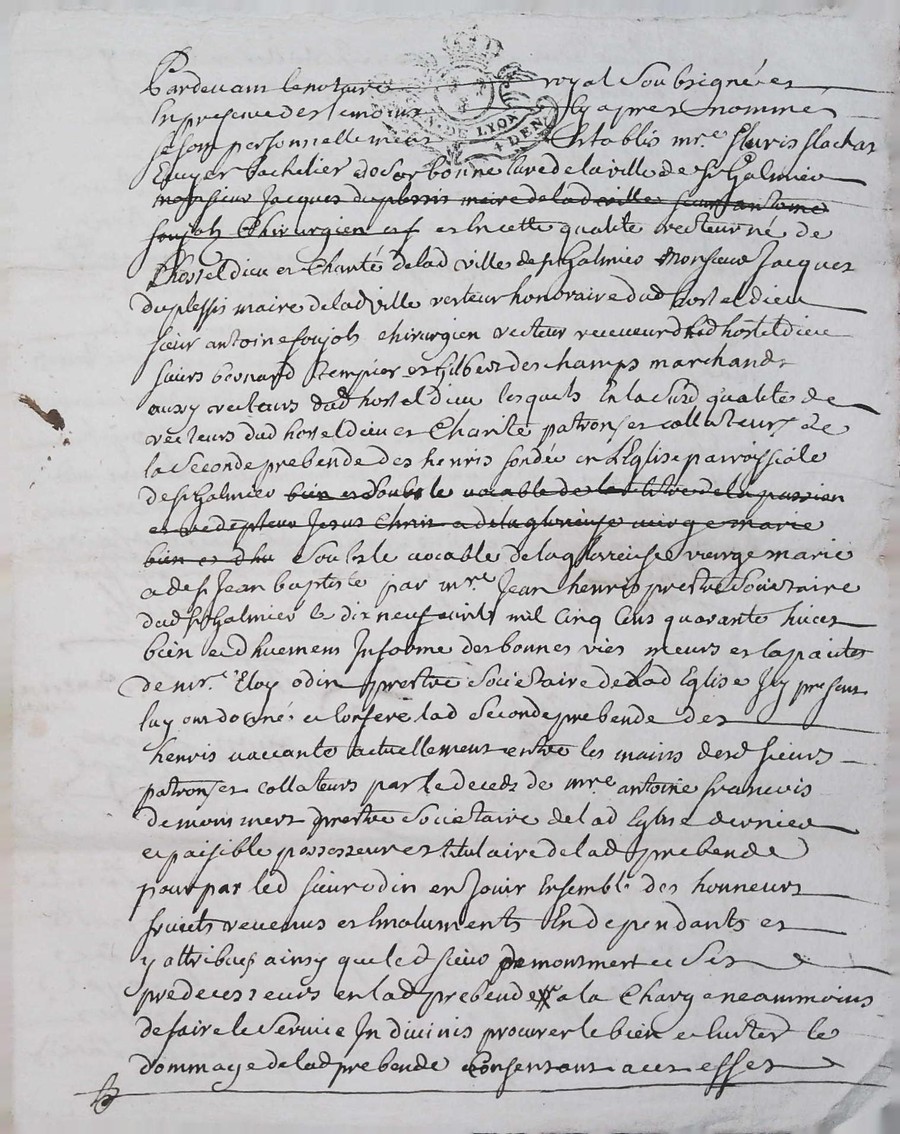 Pardevant le notaire royal soubsigné et
En presence des temoins cy apres nommés
se sont personnellement Etablis mr.e fleuris flachat
Ecuyer bachelier de Sorbonne curé de la ville de St Galmier
monsieur Jacques duplessis maire de lad ville sieur antoine
soujols Chirurgien et en cette qualité recteur né de
l'hostel dieu et Charité de lad ville de st Galmier Monsieur Jacques
duplessis maire de lad ville recteur honoraire dud hostel dieu
sieur antoine soujols chirurgien recteur receveur dud hostel dieu
sieurs bernard et gilbert deschamps marchands
aussy recteurs dud hostel dieu lesquels En la susd qualité de
recteurs dud hostel dieu et Charité patrons et collateurs de
la seconde prebende des henris fondée en l'Eglise parroissiale
de st Galmier bien et soubs le vocable de la passion
et redempteur Jesus Christ a de la glorieuse vierge marie
bien et d'hu soubs le vocable de la glorieuse vierge marie
a de st Jean baptiste par mr.e Jean henris prestre societaire
dud St Galmier le dix neuf mil cinq cens quarante huict
bien et dhuement Informé des bonnes vies meurs et capacités
de mr.e Eloy odin prestre societaire de lad Eglise Icy present
luy ont donné et conferé lad seconde prebende des
henris vaccante actuellement entre les mains desd sieurs
patrons et collateurs par le deceds de mr.e antoine francois
demontmert prestre societaire de lad Eglise dernier
et paisible possesseur et titulaire de lad prebende
pour par led sieur odin en Jouir Ensemble des honneurs
fruits revenus et Emoluments En dependants et
y attribués ainsy que led sieur demontmert et ses
predecesseurs en lad prebende a la Charge neammoins
de faire le service In divinis procurer le bien et luiter le
dommage de lad prebende Consentant a cet effet
N. DE LYON
4 DEN